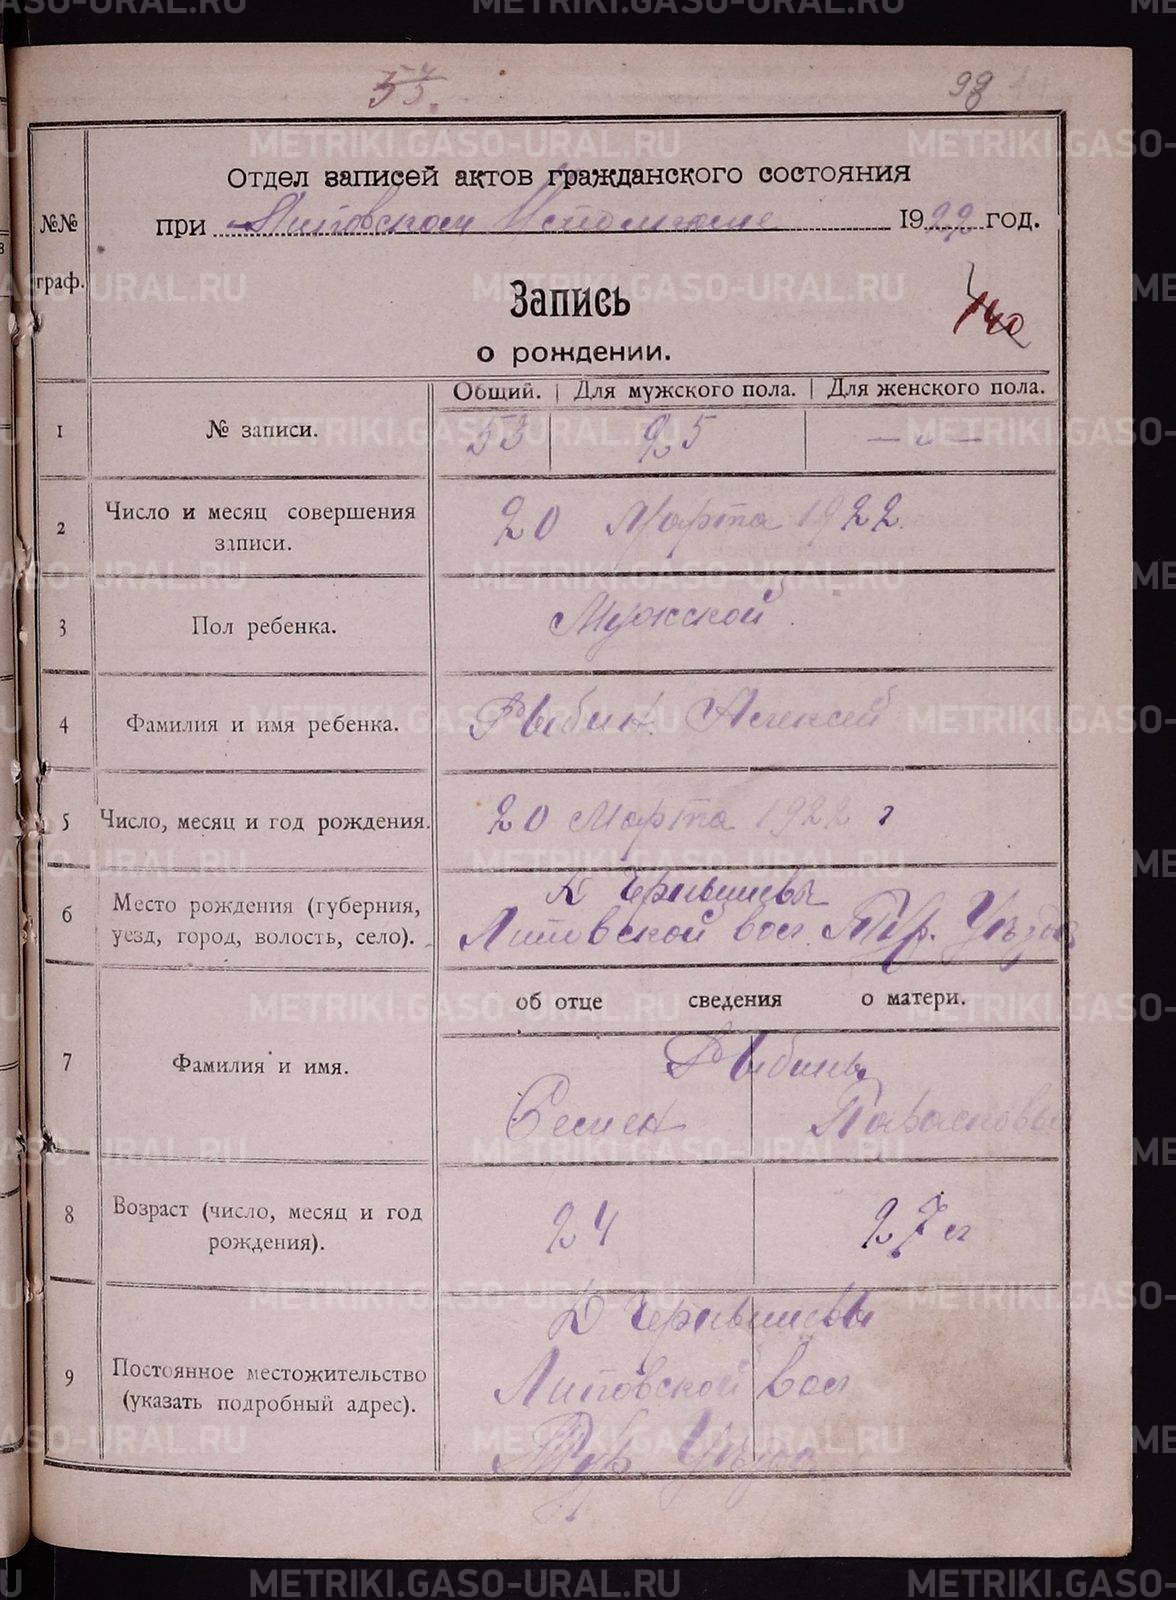 98
Отдел записей актов гражданского состояния
при Липовском Исполкоме 1922 год.
№№
граф.
Запись
о рождении.
140
Общий. Для мужского пола. Для женского пола.
1 № записи. 53 25 — „ —
2 Число и месяц совершения
записи.
20 Марта 1922.
3 Пол ребенка. Мужской.
4 Фамилия и имя ребенка. Рыбин Алексей
5 Число, месяц и год рождения. 20 Марта 1922 г
6 Место рождения (губерния,
уезд, город, волость, село).
Липовской вол. Тур. Уѣзда
об отце сведения о матери.
7 Фамилия и имя. Рыбины
Семен
8 Возраст (число, месяц и год
рождения).
24 27 л
9 Постоянное местожительство
(указать подробный адрес).
Липовской вол
Тур. Уѣзда
METRIKI.GASO-URAL.RU